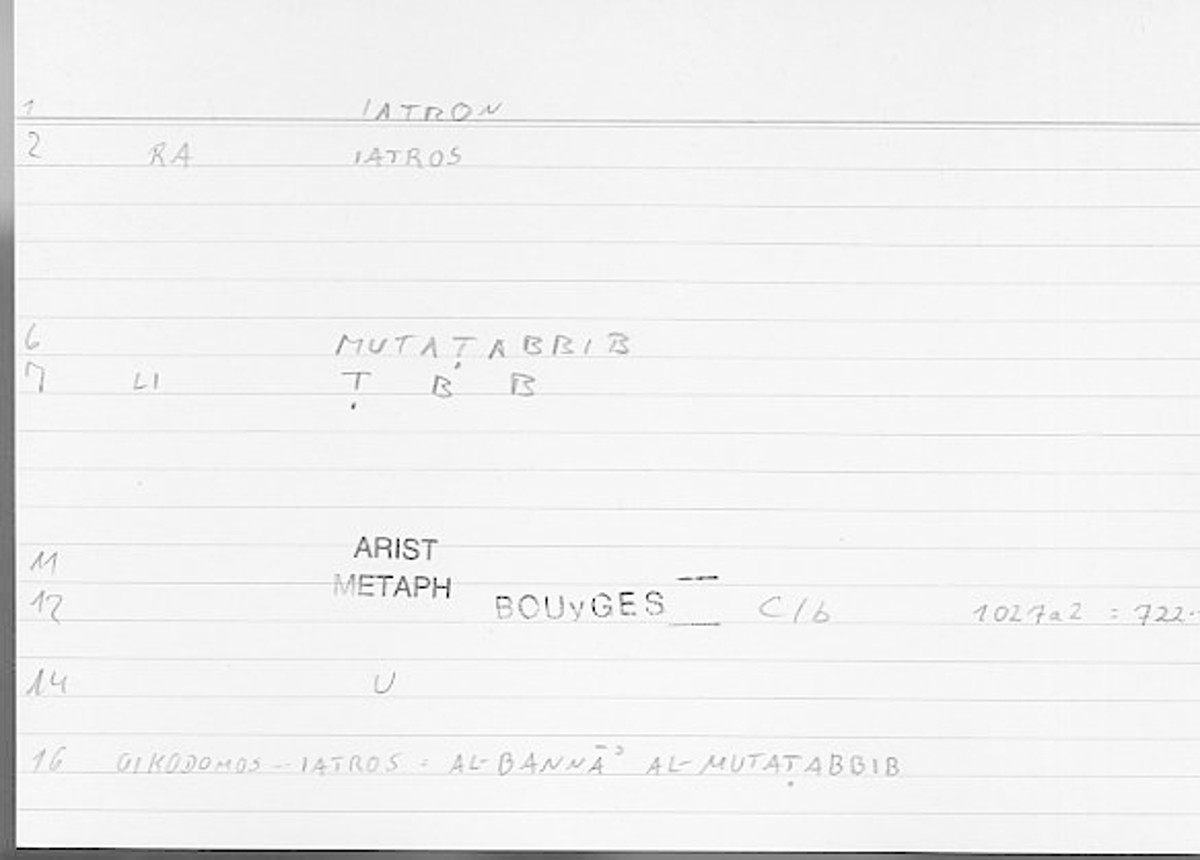 1 IATRON
2 RA IATROS
6 MUTAṬABBIB
7 LI Ṭ B B
11 ARIST
METAPH
12 BOUyGES C/b 1027a2 : 722.
14 U
16 OIKODOMOS - IATROS : AL-BANNĀʾ AL-MUTAṬABBIB